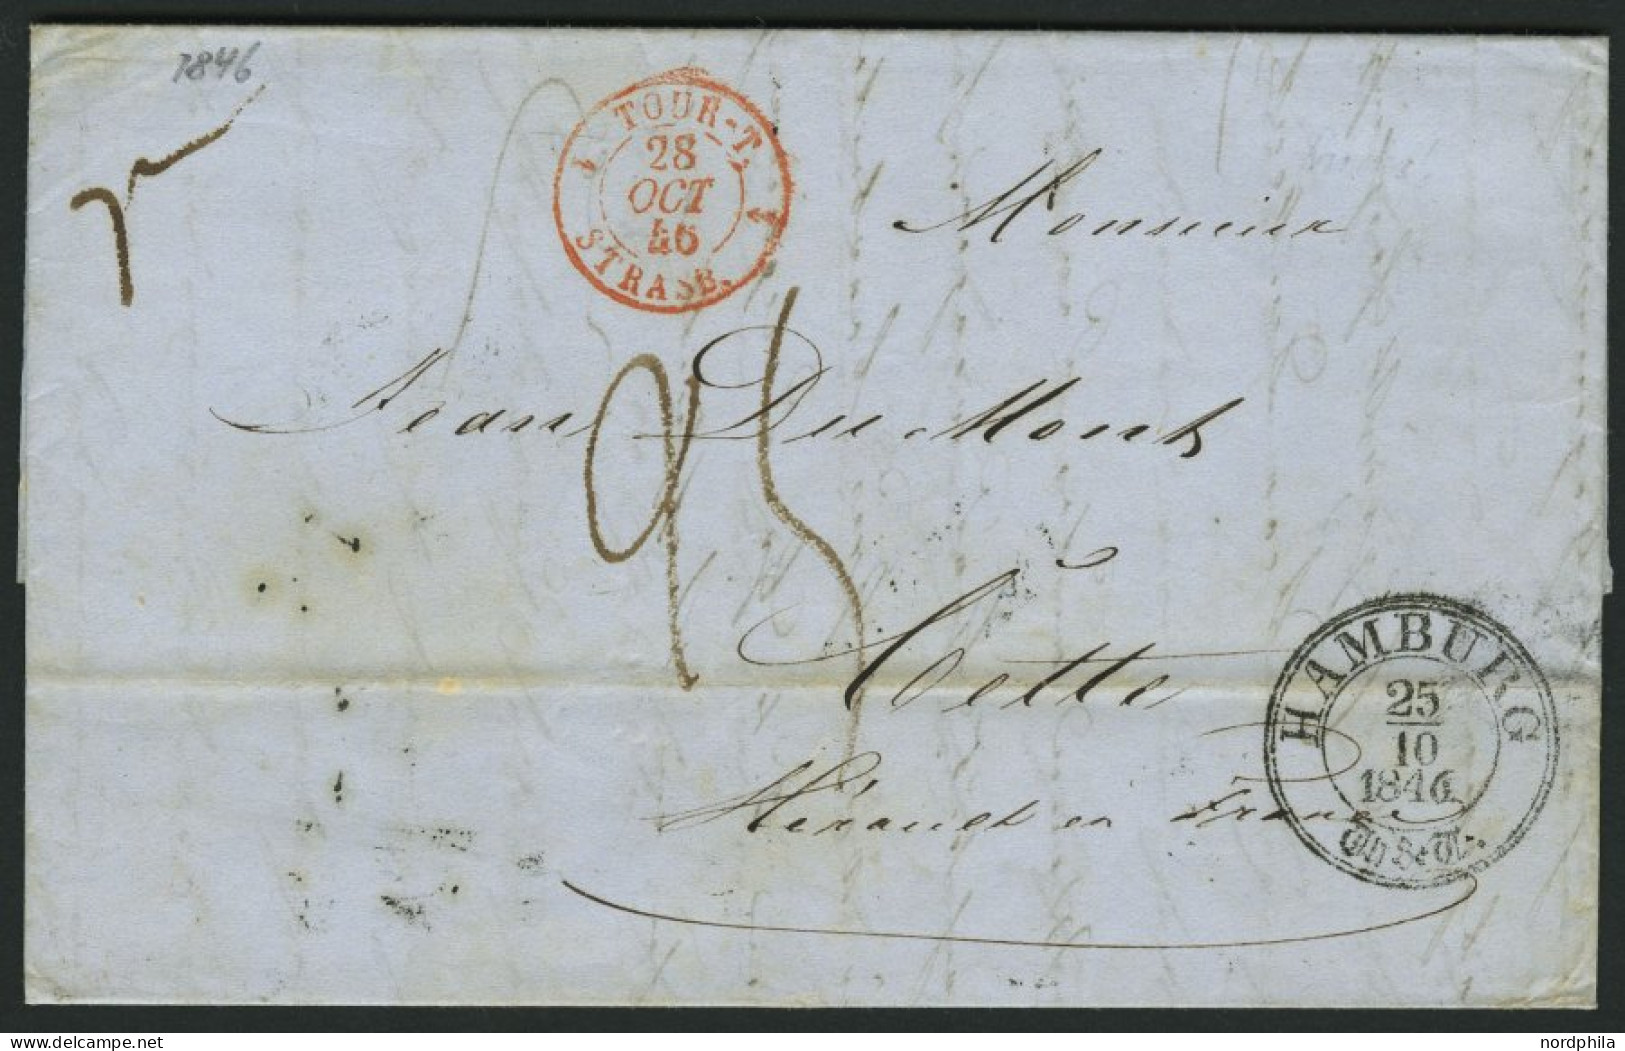 1846
TOUR-T.
28
OCT
46
STRASB.
Monsieur
Jean DuMont
Cette
Hérault en France
HAMBURG
25
10
1846
Th&T.
nordphila